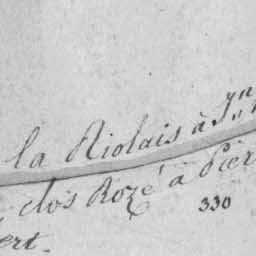 la Riolais à Jn
clos Rozé à Pier
330
ert.